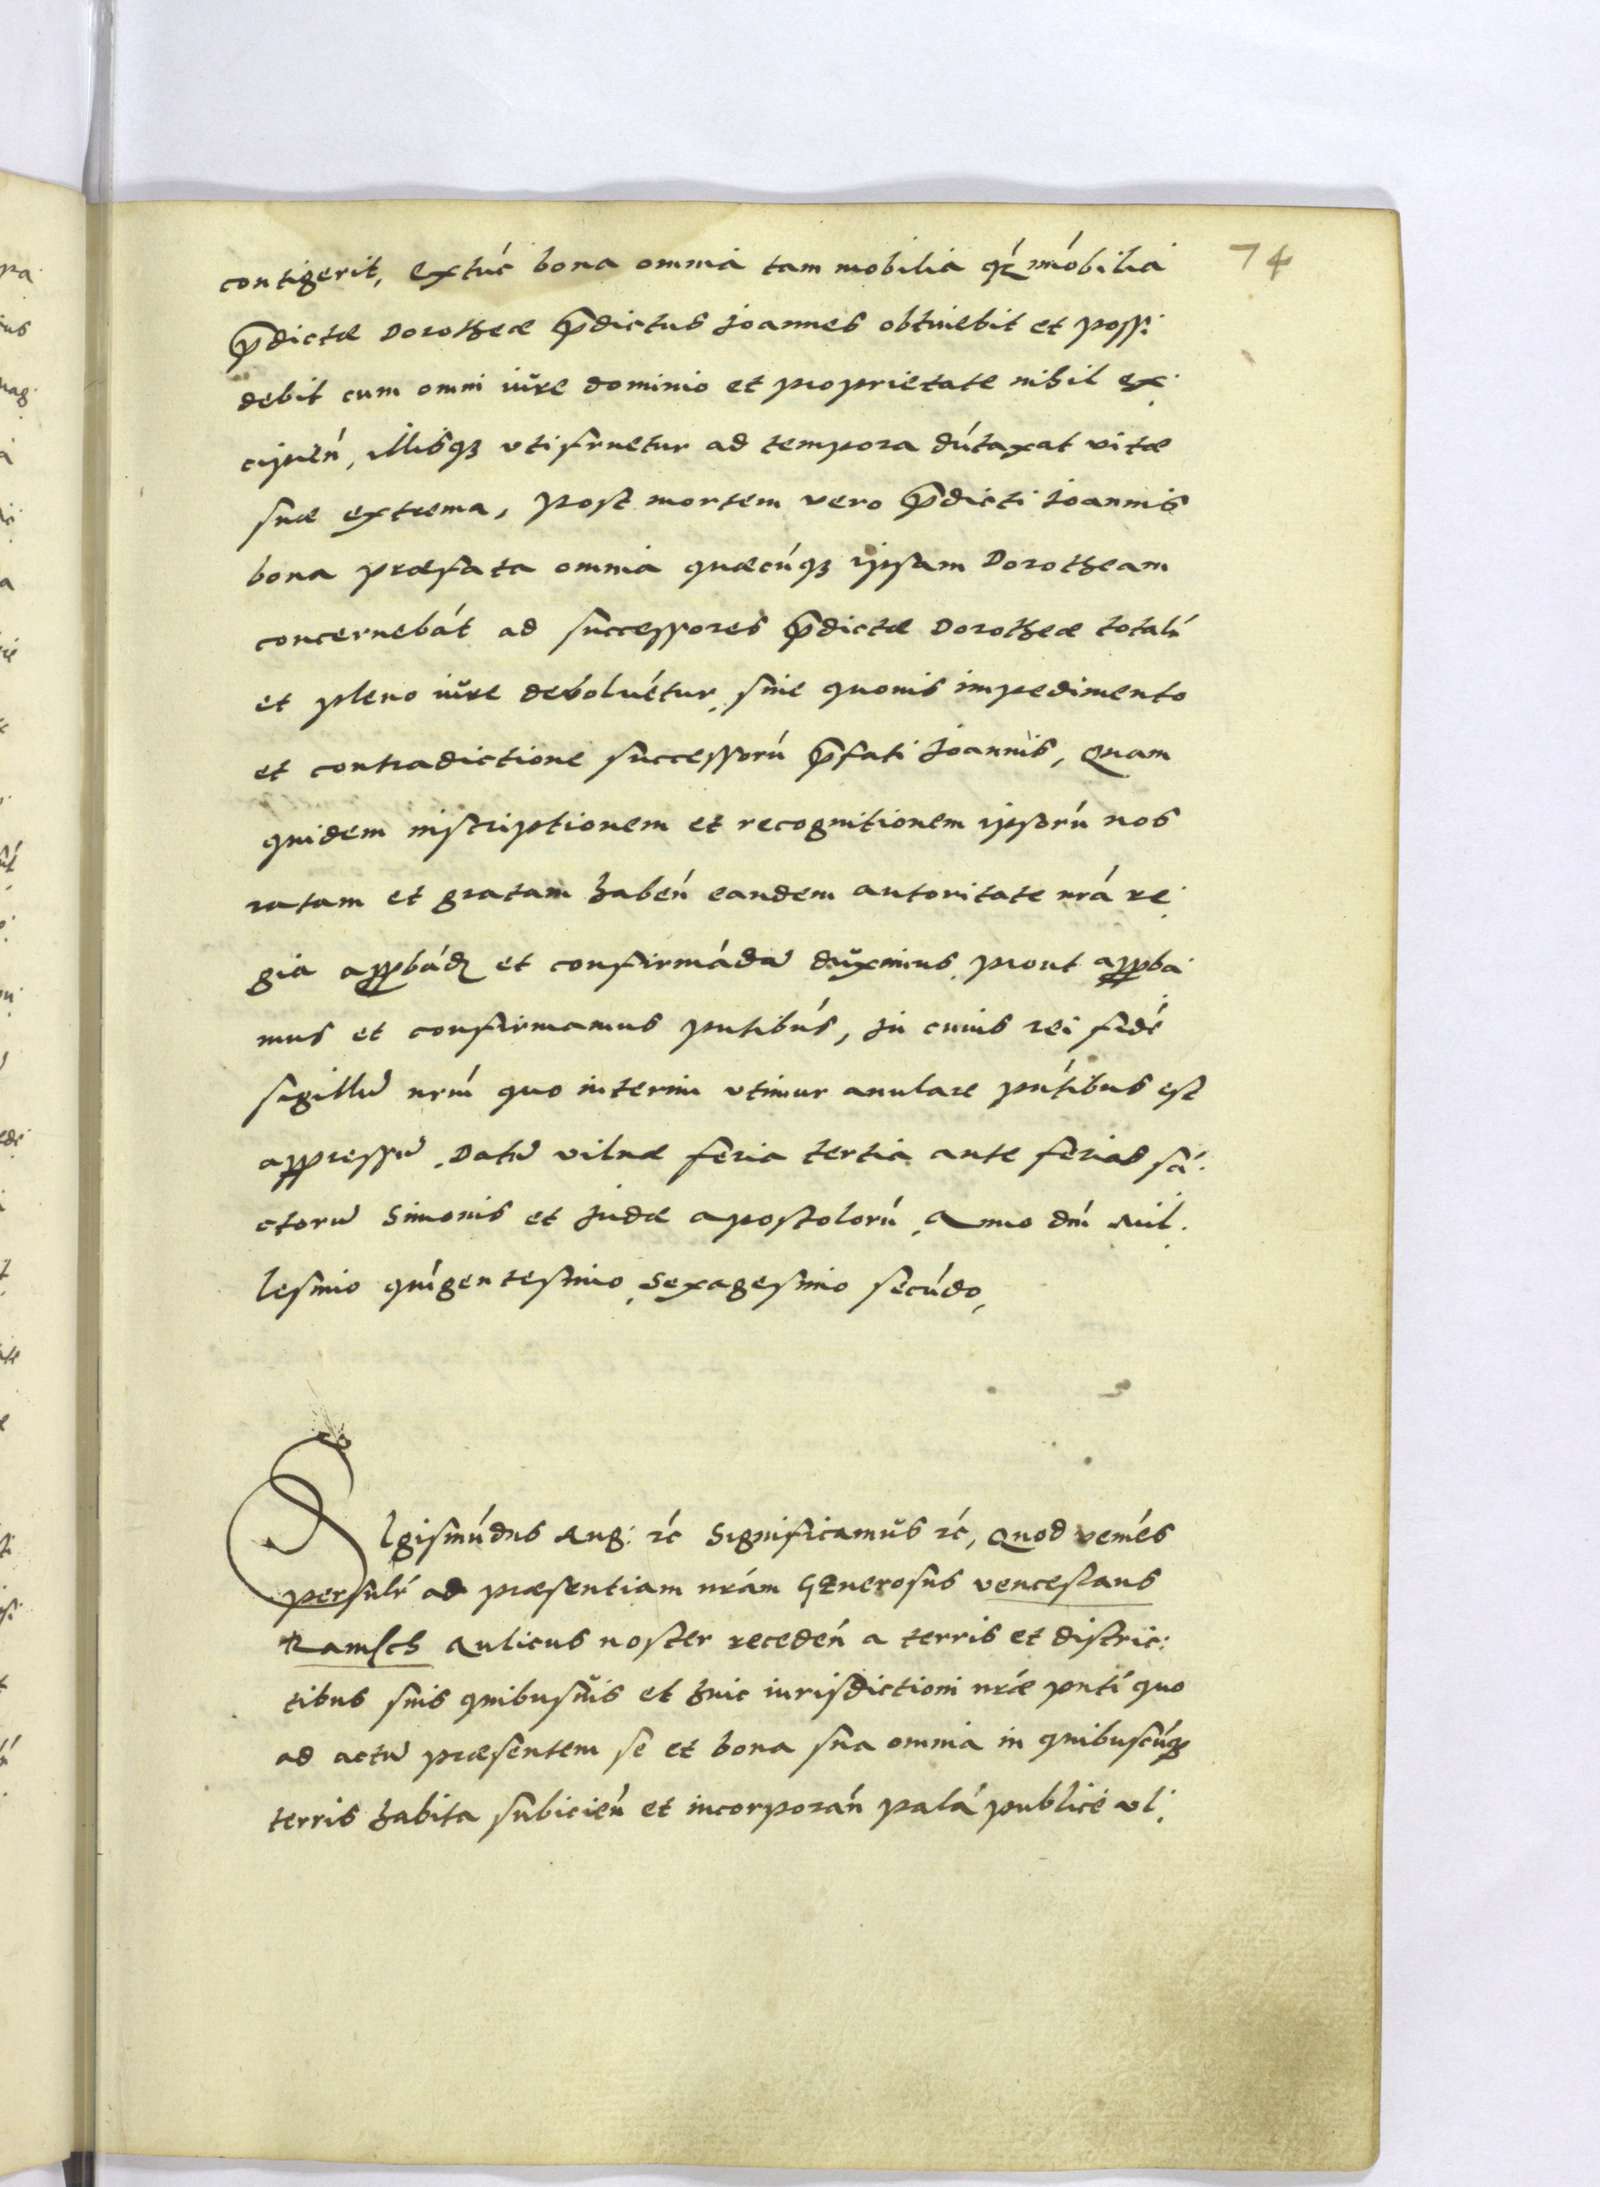 74
contigerit, extúc bona omnia tam mobilia qḿ imóbilia
p̄dictæ Dorotheæ p̄dictus Joannes obtinebit et possi:
debit cum omni iŭre dominio et proprietate nihil ex:
cipień, illisqꝫ vtifruetur ad tempora dútaxat vitæ
suæ extrema, post mortem vero p̄dicti Joannis
bona præfata omnia quæcúqꝫ ipsam Dorotheam
concernebát ad successores p̄dictæ Dorotheæ totalí
et pleno iŭre deuoluétur, sine quouis impedimento
et contradictione successorú p̄fati Joannis, Quam
quidem inscriptionem et recognitionem ipsorú nos
ratam et gratam habeń eandem autoritate nrá re:
gia appbád et confirmádā duximus, prout appba:
mus et confirmamus pntibús, Jn cuius rei fidé
sigillū nrúm quo interim vtimur anulare pńtibus est
appressū. Datū vilnæ feria tertia ante ferias sá:
ctorū Simonis et Judæ apostolorú, Anno dńi Mil:
lesimo quígentesimo, Sexagesimo secúdo,
SIgismúdus Aug: ꝛć Significamŭs ꝛć, Quod veniés
persnlr̃ ad præsentiam nrám GEnerosus venceslaus
Ramsch Aulicus noster recedeń a terris et distric:
tibus suis quibusuis et huic iurisdictioni nráe pntí quo
ad actū præsentem se et bona sua omnia in quibuscúqꝫ
terris habita subicień et incorporáń palá publicé vl: